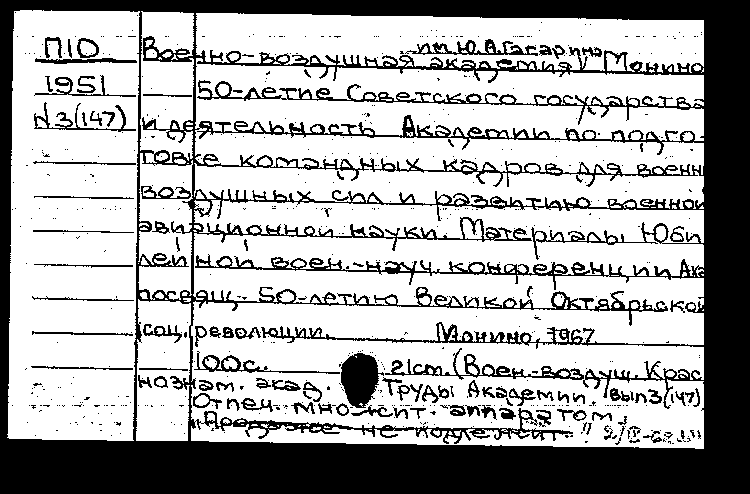 П10
1951
N3(147)
им. Ю. А. Гагарина
Военно-воздушная академия V Монино
50-летие Советского государства
и деятельность Академии по подго-
товке командных кадров для военн
воздушных сил и развитию военной
авиационной науки. Материалы Юби
лейной воен.-науч. конференции Ака
посвящ. 50-летию Великой Октябрьской
соц. революции. Монино, 1967
100с. 21см. (Воен.-воздуш. Крас
нознам. акад. Труды Академии. Вып3(147)
Отпеч. множит. аппаратом.
"Продаже не подлежит"